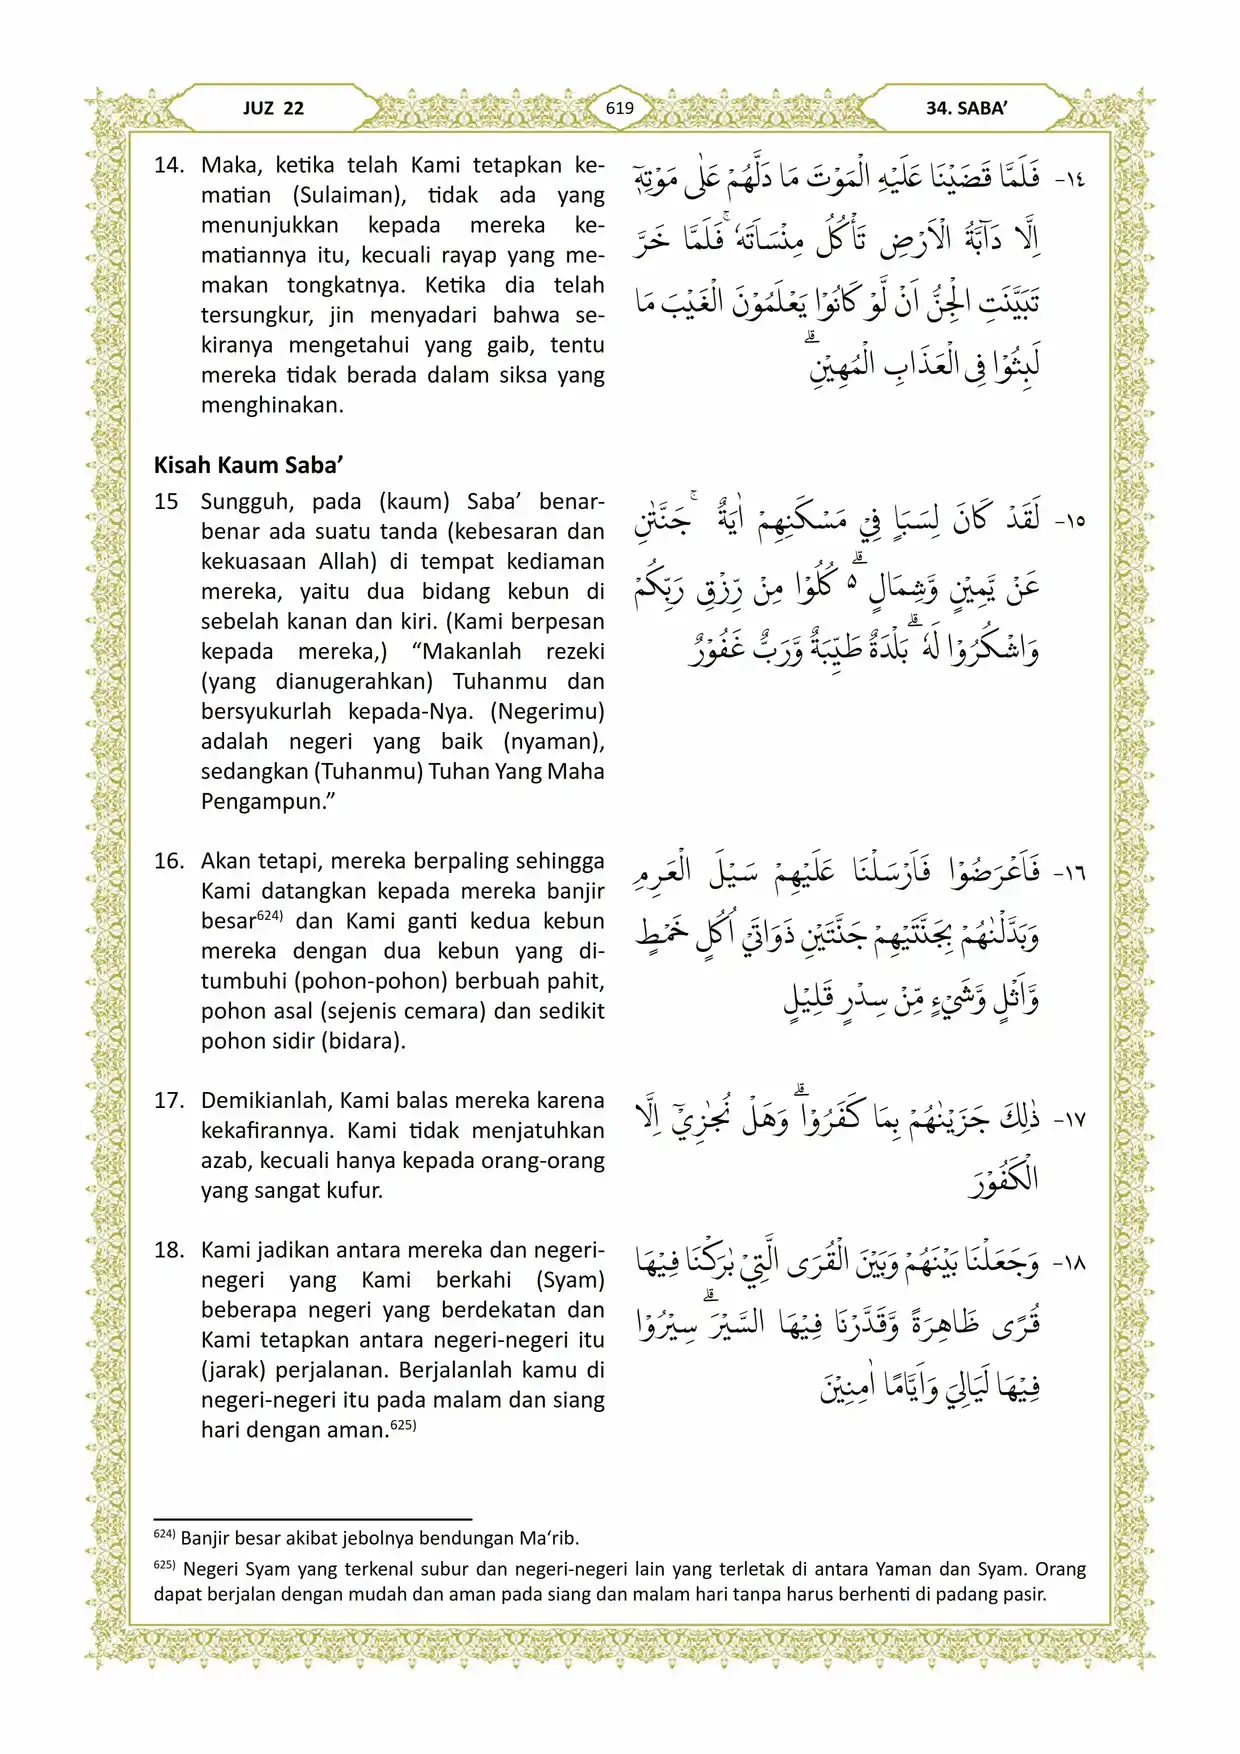 JUZ 22
619
34. SABA’
14. Maka, ketika telah Kami tetapkan ke-
matian (Sulaiman), tidak ada yang
menunjukkan kepada mereka ke-
matiannya itu, kecuali rayap yang me-
makan tongkatnya. Ketika dia telah
tersungkur, jin menyadari bahwa se-
kiranya mengetahui yang gaib, tentu
mereka tidak berada dalam siksa yang
menghinakan.
١٤- فَلَمَّا قَضَيْنَا عَلَيْهِ الْمَوْتَ مَا دَلَّهُمْ عَلٰى مَوْتِهٖٓ
اِلَّا دَاۤبَّةُ الْاَرْضِ تَأْكُلُ مِنْسَاَتَهٗ ۚفَلَمَّا خَرَّ
تَبَيَّنَتِ الْجِنُّ اَنْ لَّوْ كَانُوْا يَعْلَمُوْنَ الْغَيْبَ مَا
لَبِثُوْا فِى الْعَذَابِ الْمُهِيْنِۗ
Kisah Kaum Saba’
15 Sungguh, pada (kaum) Saba’ benar-
benar ada suatu tanda (kebesaran dan
kekuasaan Allah) di tempat kediaman
mereka, yaitu dua bidang kebun di
sebelah kanan dan kiri. (Kami berpesan
kepada mereka,) “Makanlah rezeki
(yang dianugerahkan) Tuhanmu dan
bersyukurlah kepada-Nya. (Negerimu)
adalah negeri yang baik (nyaman),
sedangkan (Tuhanmu) Tuhan Yang Maha
Pengampun.”
١٥- لَقَدْ كَانَ لِسَبَاٍ فِيْ مَسْكَنِهِمْ اٰيَةٌ ۚجَنَّتٰنِ
عَنْ يَّمِيْنٍ وَّشِمَالٍ ۗ ەۗ كُلُوْا مِنْ رِّزْقِ رَبِّكُمْ
وَاشْكُرُوْا لَهٗ ۗبَلْدَةٌ طَيِّبَةٌ وَّرَبٌّ غَفُوْرٌ
16. Akan tetapi, mereka berpaling sehingga
Kami datangkan kepada mereka banjir
besar⁶²⁴⁾ dan Kami ganti kedua kebun
mereka dengan dua kebun yang di-
tumbuhi (pohon-pohon) berbuah pahit,
pohon asal (sejenis cemara) dan sedikit
pohon sidir (bidara).
١٦- فَاَعْرَضُوْا فَاَرْسَلْنَا عَلَيْهِمْ سَيْلَ الْعَرِمِ
وَبَدَّلْنٰهُمْ بِجَنَّتَيْهِمْ جَنَّتَيْنِ ذَوَاتَيْ اُكُلٍ خَمْطٍ
وَّاَثْلٍ وَّشَيْءٍ مِّنْ سِدْرٍ قَلِيْلٍ
17. Demikianlah, Kami balas mereka karena
kekafirannya. Kami tidak menjatuhkan
azab, kecuali hanya kepada orang-orang
yang sangat kufur.
١٧- ذٰلِكَ جَزَيْنٰهُمْ بِمَا كَفَرُوْاۗ وَهَلْ نُجٰزِيْٓ اِلَّا
الْكَفُوْرَ
18. Kami jadikan antara mereka dan negeri-
negeri yang Kami berkahi (Syam)
beberapa negeri yang berdekatan dan
Kami tetapkan antara negeri-negeri itu
(jarak) perjalanan. Berjalanlah kamu di
negeri-negeri itu pada malam dan siang
hari dengan aman.⁶²⁵⁾
١٨- وَجَعَلْنَا بَيْنَهُمْ وَبَيْنَ الْقُرَى الَّتِيْ بٰرَكْنَا فِيْهَا
قُرًى ظَاهِرَةً وَّقَدَّرْنَا فِيْهَا السَّيْرَۗ سِيْرُوْا
فِيْهَا لَيَالِيَ وَاَيَّامًا اٰمِنِيْنَ
⁶²⁴⁾ Banjir besar akibat jebolnya bendungan Ma‘rib.
⁶²⁵⁾ Negeri Syam yang terkenal subur dan negeri-negeri lain yang terletak di antara Yaman dan Syam. Orang
dapat berjalan dengan mudah dan aman pada siang dan malam hari tanpa harus berhenti di padang pasir.